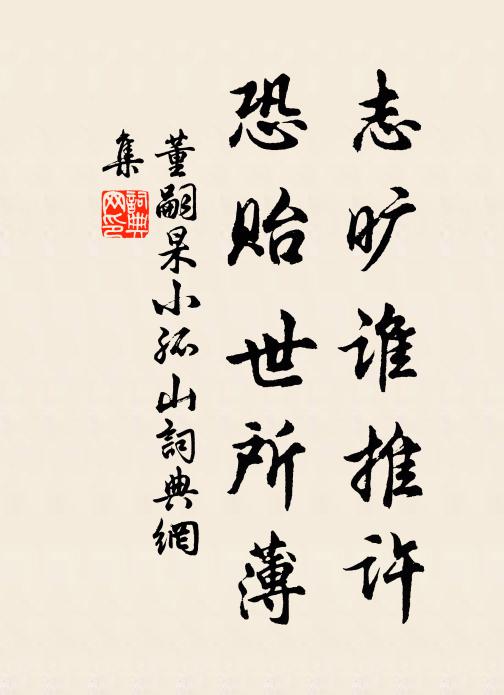 志旷谁推许
恐贻世所薄
董嗣杲小孤山詞典網
集
詞典网印